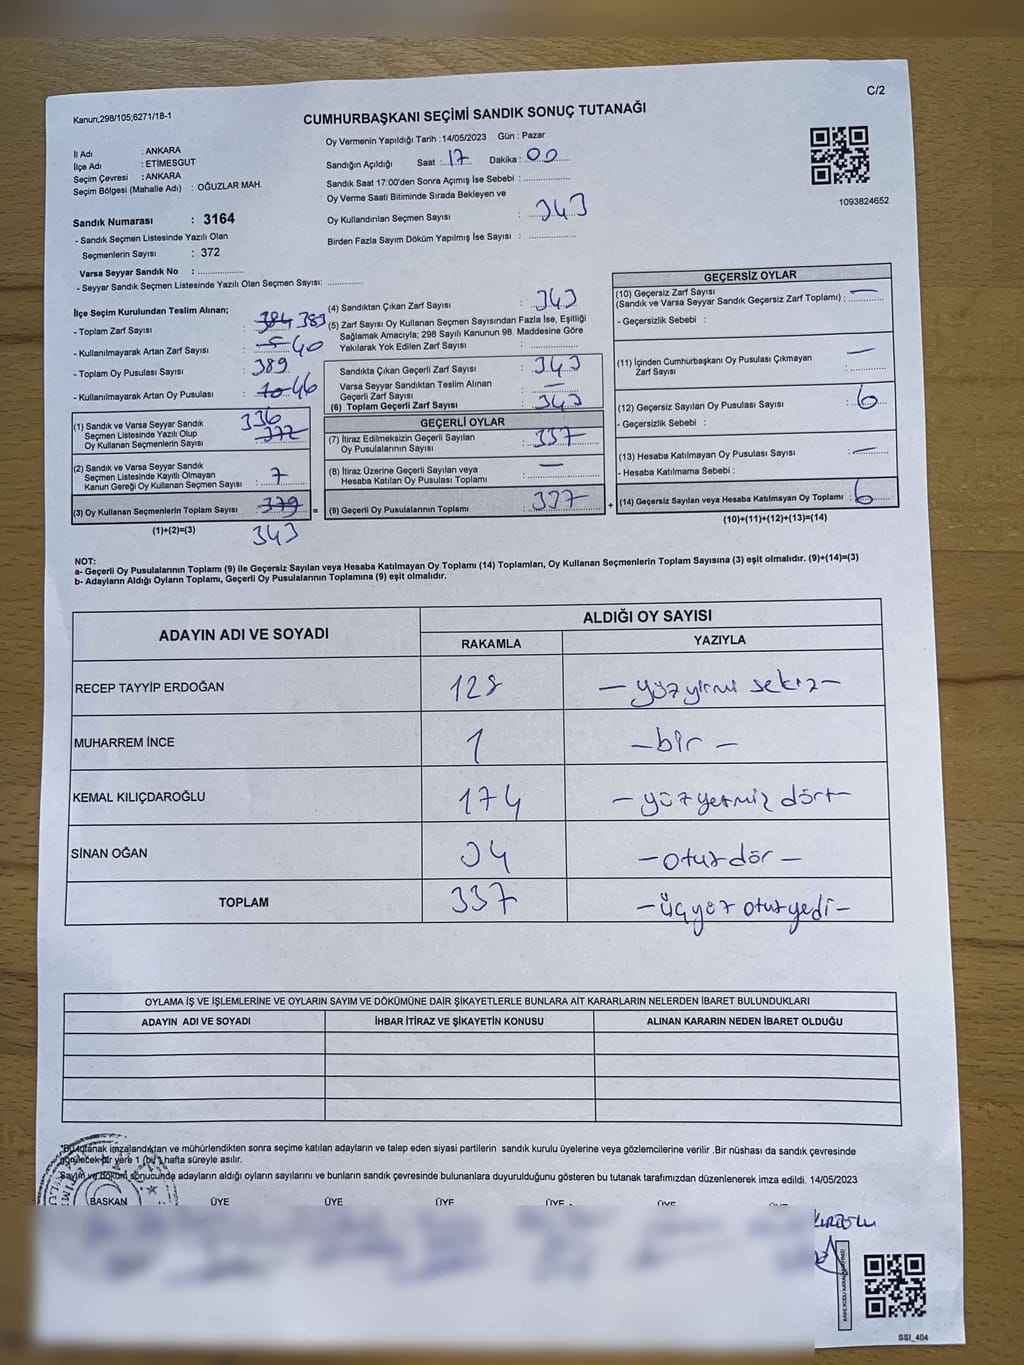 Kanun;298/105;6271/18-1
C/2
CUMHURBAŞKANI SEÇİMİ SANDIK SONUÇ TUTANAĞI
Oy Vermenin Yapıldığı Tarih :14/05/2023 Gün : Pazar
İl Adı : ANKARA
İlçe Adı : ETİMESGUT
Seçim Çevresi : ANKARA
Seçim Bölgesi (Mahalle Adı) : OĞUZLAR MAH.
Sandığın Açıldığı Saat : 17 Dakika : 00
Sandık Saat 17:00'den Sonra Açımış İse Sebebi : ..............
Oy Verme Saati Bitiminde Sırada Bekleyen ve
Oy Kullandırılan Seçmen Sayısı : 343
Birden Fazla Sayım Döküm Yapılmış İse Sayısı : ..............
1093824652
Sandık Numarası : 3164
- Sandık Seçmen Listesinde Yazılı Olan
Seçmenlerin Sayısı : 372
Varsa Seyyar Sandık No : ..............
- Seyyar Sandık Seçmen Listesinde Yazılı Olan Seçmen Sayısı: ..............
İlçe Seçim Kurulundan Teslim Alınan;
- Toplam Zarf Sayısı : 384 383
- Kullanılmayarak Artan Zarf Sayısı : 5 40
- Toplam Oy Pusulası Sayısı : 389
- Kullanılmayarak Artan Oy Pusulası : 10 46
(1) Sandık ve Varsa Seyyar Sandık
Seçmen Listesinde Yazılı Olup
Oy Kullanan Seçmenlerin Sayısı 336 372
(2) Sandık ve Varsa Seyyar Sandık
Seçmen Listesinde Kayıtlı Olmayan
Kanun Gereği Oy Kullanan Seçmen Sayısı : 7
(3) Oy Kullanan Seçmenlerin Toplam Sayısı : 379 =
(1)+(2)=(3) 343
(4) Sandıktan Çıkan Zarf Sayısı : 343
(5) Zarf Sayısı Oy Kullanan Seçmen Sayısından Fazla İse, Eşitliği
Sağlamak Amacıyla; 298 Sayılı Kanunun 98. Maddesine Göre
Yakılarak Yok Edilen Zarf Sayısı : ..............
Sandıkta Çıkan Geçerli Zarf Sayısı : 343
Varsa Seyyar Sandıktan Teslim Alınan
Geçerli Zarf Sayısı : —
(6) Toplam Geçerli Zarf Sayısı : 343
GEÇERLİ OYLAR
(7) İtiraz Edilmeksizin Geçerli Sayılan
Oy Pusulalarının Sayısı : 337
(8) İtiraz Üzerine Geçerli Sayılan veya
Hesaba Katılan Oy Pusulası Toplamı : —
(9) Geçerli Oy Pusulalarının Toplamı : 337 +
GEÇERSİZ OYLAR
(10) Geçersiz Zarf Sayısı
(Sandık ve Varsa Seyyar Sandık Geçersiz Zarf Toplamı) : —
- Geçersizlik Sebebi :
(11) İçinden Cumhurbaşkanı Oy Pusulası Çıkmayan
Zarf Sayısı : —
(12) Geçersiz Sayılan Oy Pusulası Sayısı : 6
- Geçersizlik Sebebi :
(13) Hesaba Katılmayan Oy Pusulası Sayısı : —
- Hesaba Katılmama Sebebi :
(14) Geçersiz Sayılan veya Hesaba Katılmayan Oy Toplamı : 6
(10)+(11)+(12)+(13)=(14)
NOT:
a- Geçerli Oy Pusulalarının Toplamı (9) ile Geçersiz Sayılan veya Hesaba Katılmayan Oy Toplamı (14) Toplamları, Oy Kullanan Seçmenlerin Toplam Sayısına (3) eşit olmalıdır. (9)+(14)=(3)
b- Adayların Aldığı Oyların Toplamı, Geçerli Oy Pusulalarının Toplamına (9) eşit olmalıdır.
ADAYIN ADI VE SOYADI ALDIĞI OY SAYISI
RAKAMLA YAZIYLA
RECEP TAYYİP ERDOĞAN 128 – yüzyirmi sekiz –
MUHARREM İNCE 1 – bir –
KEMAL KILIÇDAROĞLU 174 – yüzyetmiz dört –
SİNAN OĞAN 34 – otuzdör –
TOPLAM 337 – üçyüz otuzyedi –
OYLAMA İŞ VE İŞLEMLERİNE VE OYLARIN SAYIM VE DÖKÜMÜNE DAİR ŞİKAYETLERLE BUNLARA AİT KARARLARIN NELERDEN İBARET BULUNDUKLARI
ADAYIN ADI VE SOYADI İHBAR İTİRAZ VE ŞİKAYETİN KONUSU ALINAN KARARIN NEDEN İBARET OLDUĞU
*Bu tutanak imzalandıktan ve mühürlendikten sonra seçime katılan adayların ve talep eden siyasi partilerin sandık kurulu üyelerine veya gözlemcilerine verilir .Bir nüshası da sandık çevresinde
görülecek bir yere 1 (bir) hafta süreyle asılır.
Sayım ve döküm sonucunda adayların aldığı oyların sayılarını ve bunların sandık çevresinde bulunanlara duyurulduğunu gösteren bu tutanak tarafımızdan düzenlenerek imza edildi. 14/05/2023
BAŞKAN ÜYE ÜYE ÜYE ÜYE ÜYE
SSI_404